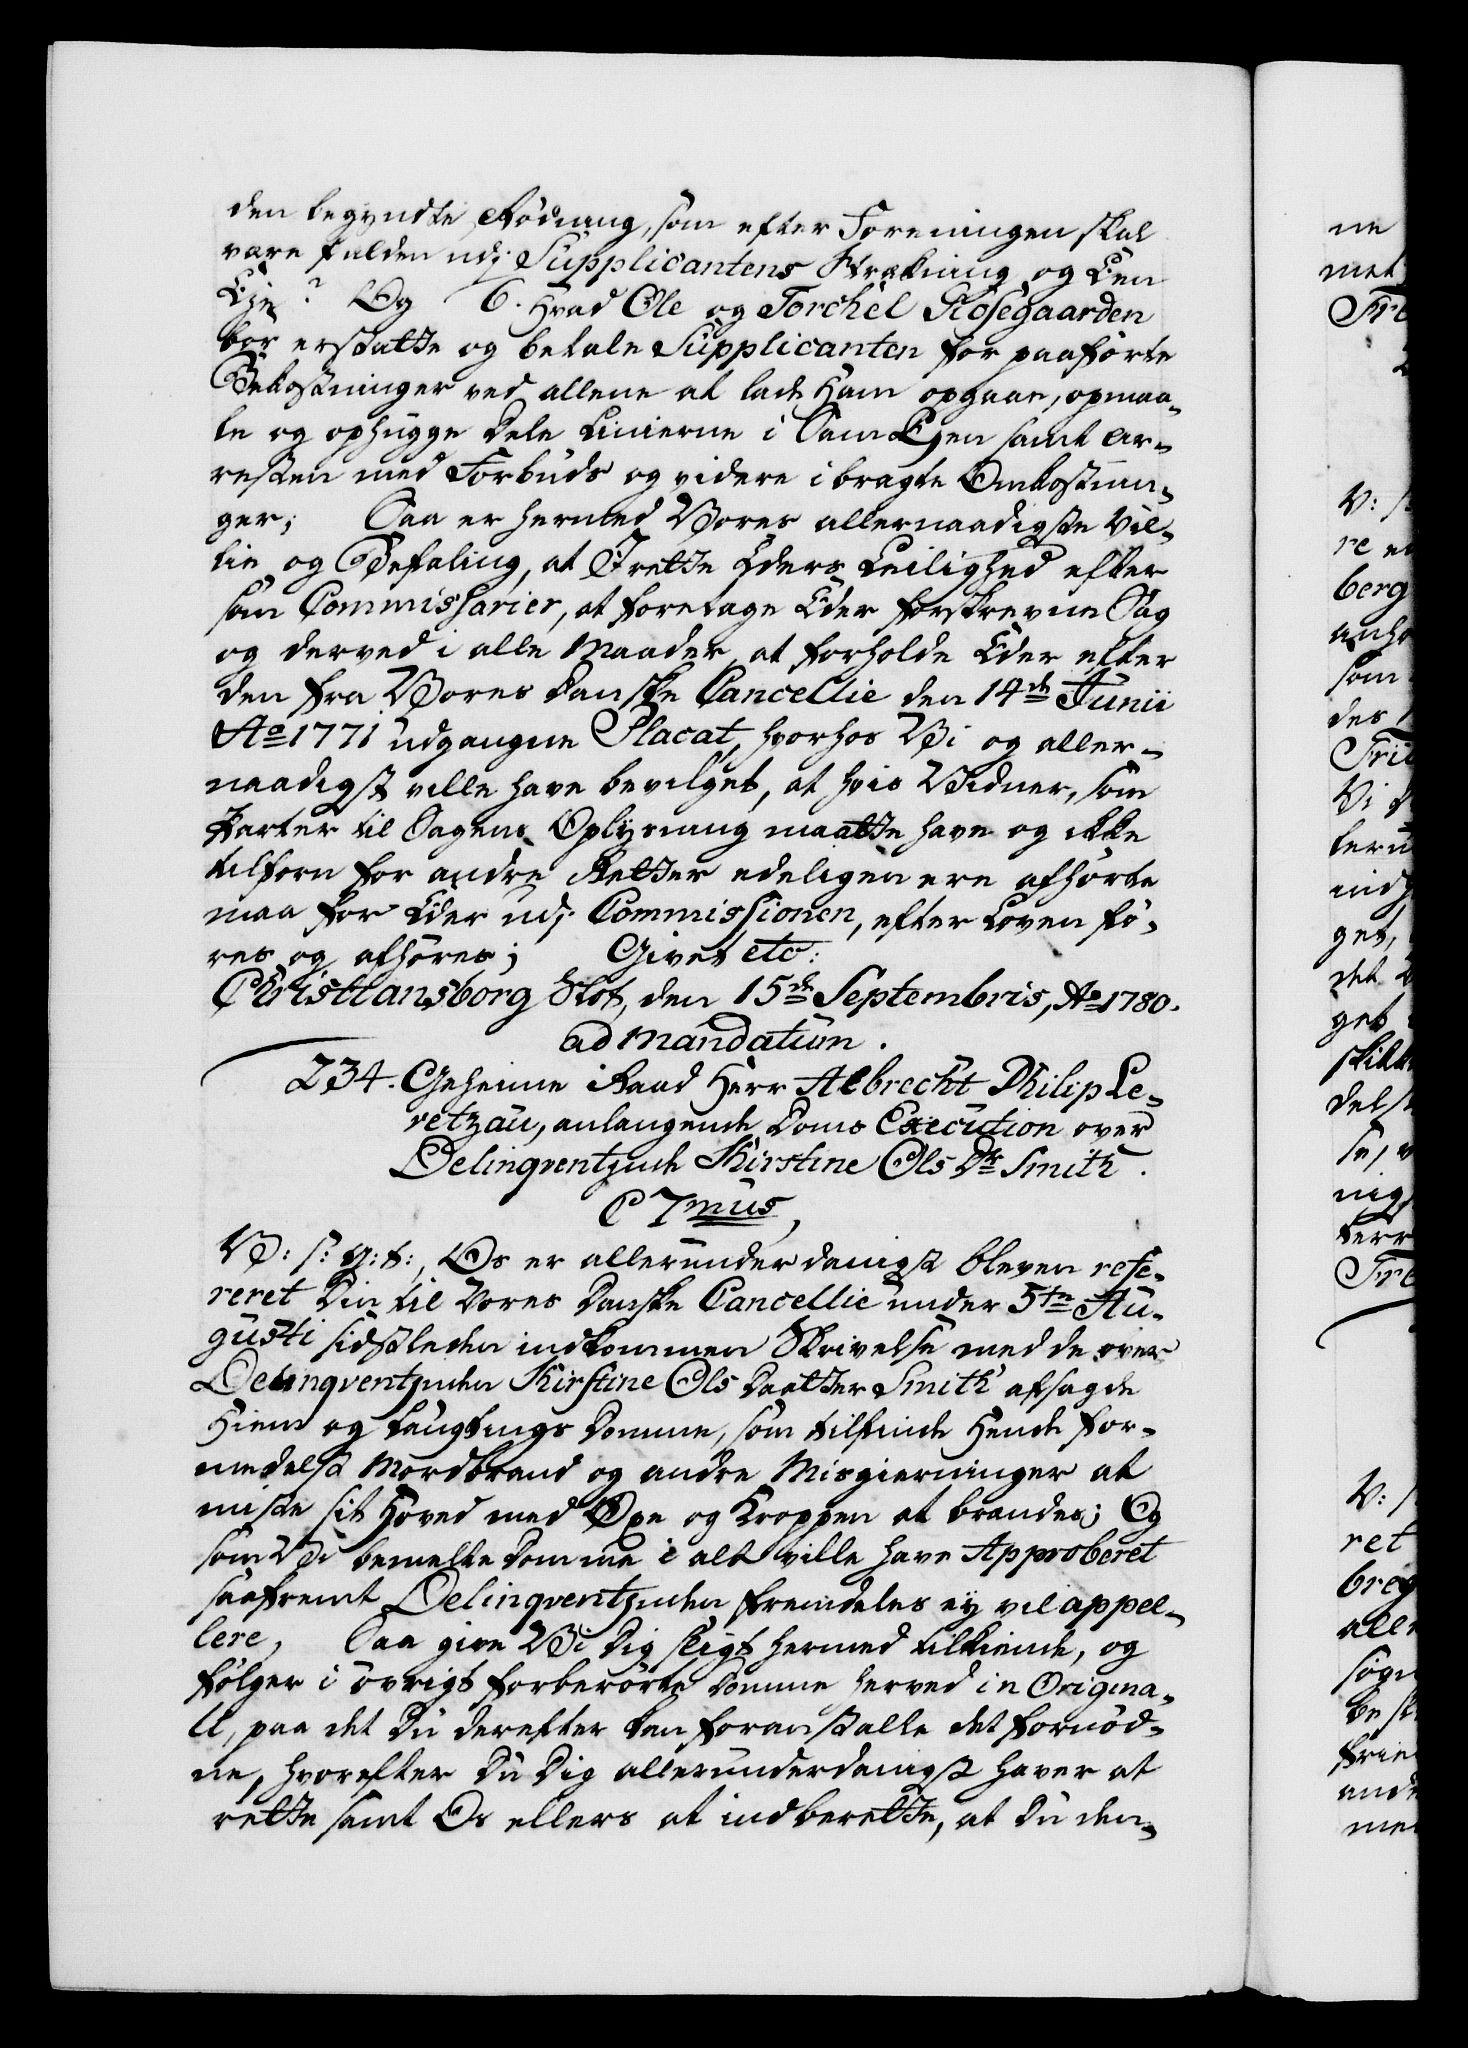 den begyndte Rødning, som efter Foreningen skal
være falden udj Supplicantens Strækning og Len
Eje? Og 6. Hvad Ole og Torchel Rosegaarden
bør erstatte og betale Supplicanten for paaførte
Bekostninger ved allene at lade Ham opgaae, opmaa-
le og ophugge Dele Linierne i SamEjen samt Ar-
resten med Forbuds og videre ibragte Omkostnin-
ger; Saa er hermed Vores allernaadigste Vil-
lie og Befaling, at I rette Eders Leilighed efter
som Commissarier, at foretage Eder forskrevne Sag
og derved i alle Maader at forholde Eder efter
den fra Vores danske Cancellie den 14de Junii
Ao 1771 udgangne Placat, hvorhos Vi og aller-
naadigst ville have bevilget, at hvis Vidner, som
Parter til Sagens Oplysning maatte have og ikke
tilforn for andre Retter edeligen ere afhørte
maa for Eder udj Commissionen, efter Loven fø-
res og afhøres; Givet etc:
Christiansborg Slot, den 15de Septembris, Ao 1780.
ad Mandatum.
234. Geheime Raad Herr Albrecht Philip Le-
vetzau, anlangende Doms Execution over
Delinqventinde Kirstine Ols Dr Smith.
C 7mus,
V: s: g: t:, Os er allerunderdanigst bleven refe-
reret Din til Vores danske Cancellie under 5te Au-
gusti sidstleden indkommen Skrivelse med de over
Delinqventinden Kirstine Ols Daatter Smith afsagde
Hiem og Laugtings Domme, som tilfinde Hende for-
medelst Mordbrand og andre Misgierninger at
miste sit Hoved med Øxe og Kroppen at brændes; Og
som Vi bemelte Domme i alt ville have Approberet
saafremt Delinqventinden fremdeles ey vil appel-
lere, Saa give Vi Dig sligt hermed tilkiende, og
følger i øvrigt forberørte Domme herved in Origina-
li, paa det Du derefter kan foranstalte det fornød-
ne, hvorefter Du Dig allerunderdanigst haver at
rette samt Os ellers at indberette, at Du den-